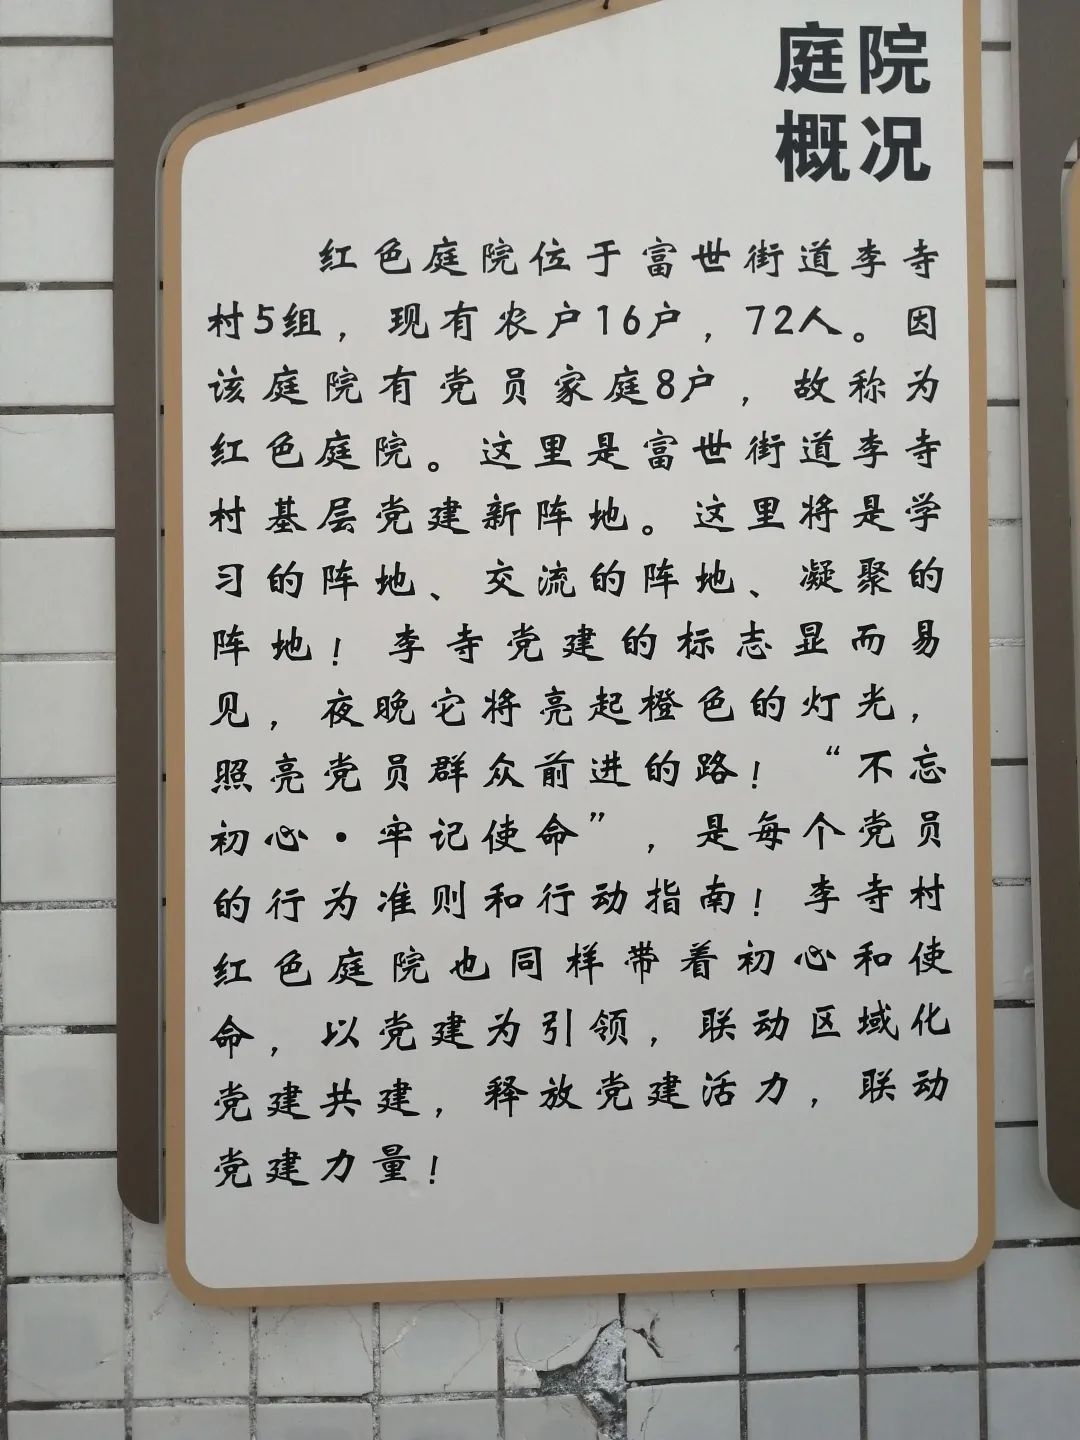 庭院
概况
红色庭院位于富世街道李寺
村5组，现有农户16户，72人。因
该庭院有党员家庭8户，故称为
红色庭院。这里是富世街道李寺
村基层党建新阵地。这里将是学
习的阵地、交流的阵地、凝聚的
阵地！李寺党建的标志显而易
见，夜晚它将亮起橙色的灯光，
照亮党员群众前进的路！“不忘
初心·牢记使命”，是每个党员
的行为准则和行动指南！李寺村
红色庭院也同样带着初心和使
命，以党建为引领，联动区域化
党建共建，释放党建活力，联动
党建力量！